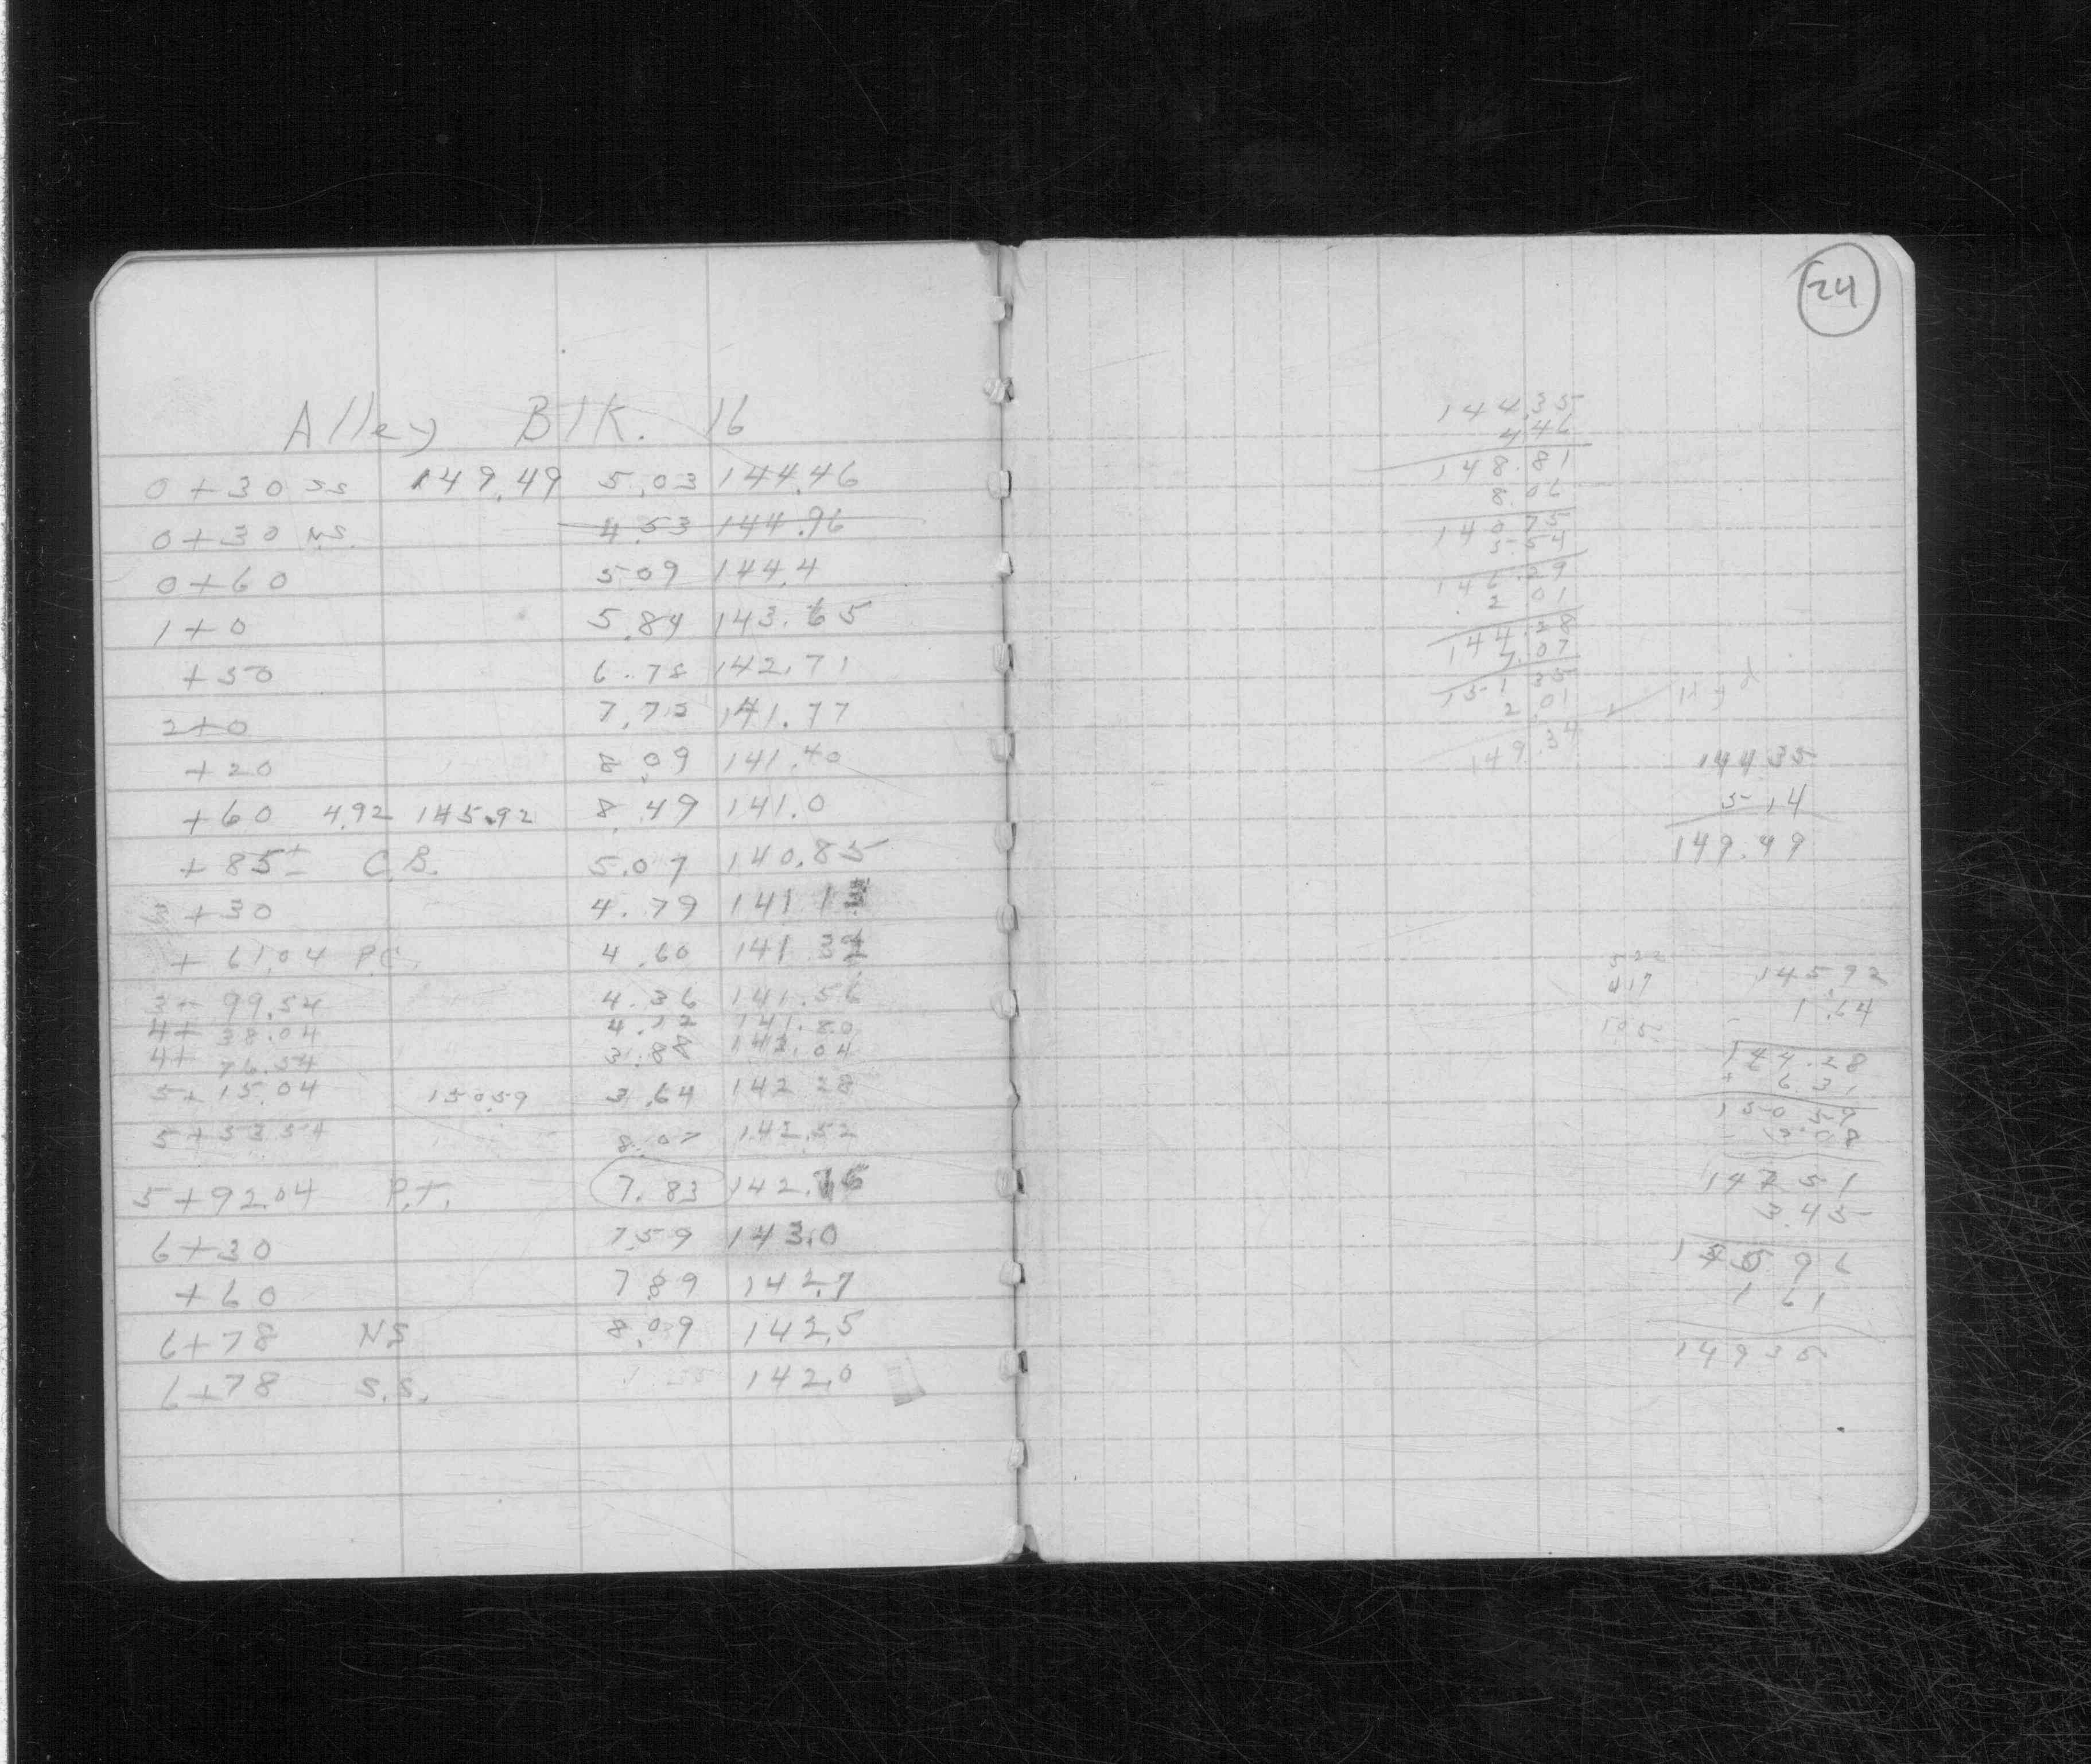 Alley Blk. 16
0+30 SS 149.49 5.03 144.46
0+30 N.S. 4.53 144.96
0+60 5.09 144.4
1+0 5.84 143.65
+50 6.78 142.71
2+0 7.72 141.77
+20 8.09 141.40
+60 4.92 145.92 8.49 141.0
+85± C.B. 5.07 140.85
+30 4.79 141.1
+61.04 P.C. 4.60 141.32
3+99.54 4.36 141.56
4+38.04 4.12 141.80
4+76.54 3.88 142.04
5+15.04 150.59 3.64 142.28
5+53.54 8.07 142.52
5+92.04 P.T. 7.83 142.76
6+30 7.59 143.0
+60 7.89 142.7
6+78 NS 8.09 142.5
6+78 S.S. 142.0
24
144.35
4.46
148.81
8.06
140.75
5.54
146.29
2.01
144.28
7.07
151.35
2.01
149.34
Hyd
144.35
5.14
149.49
5.22
4.17
1.05
145.92
- 1.64
144.28
+ 6.31
150.59
- 3.08
147.51
3.45
150.96
1.61
149.35